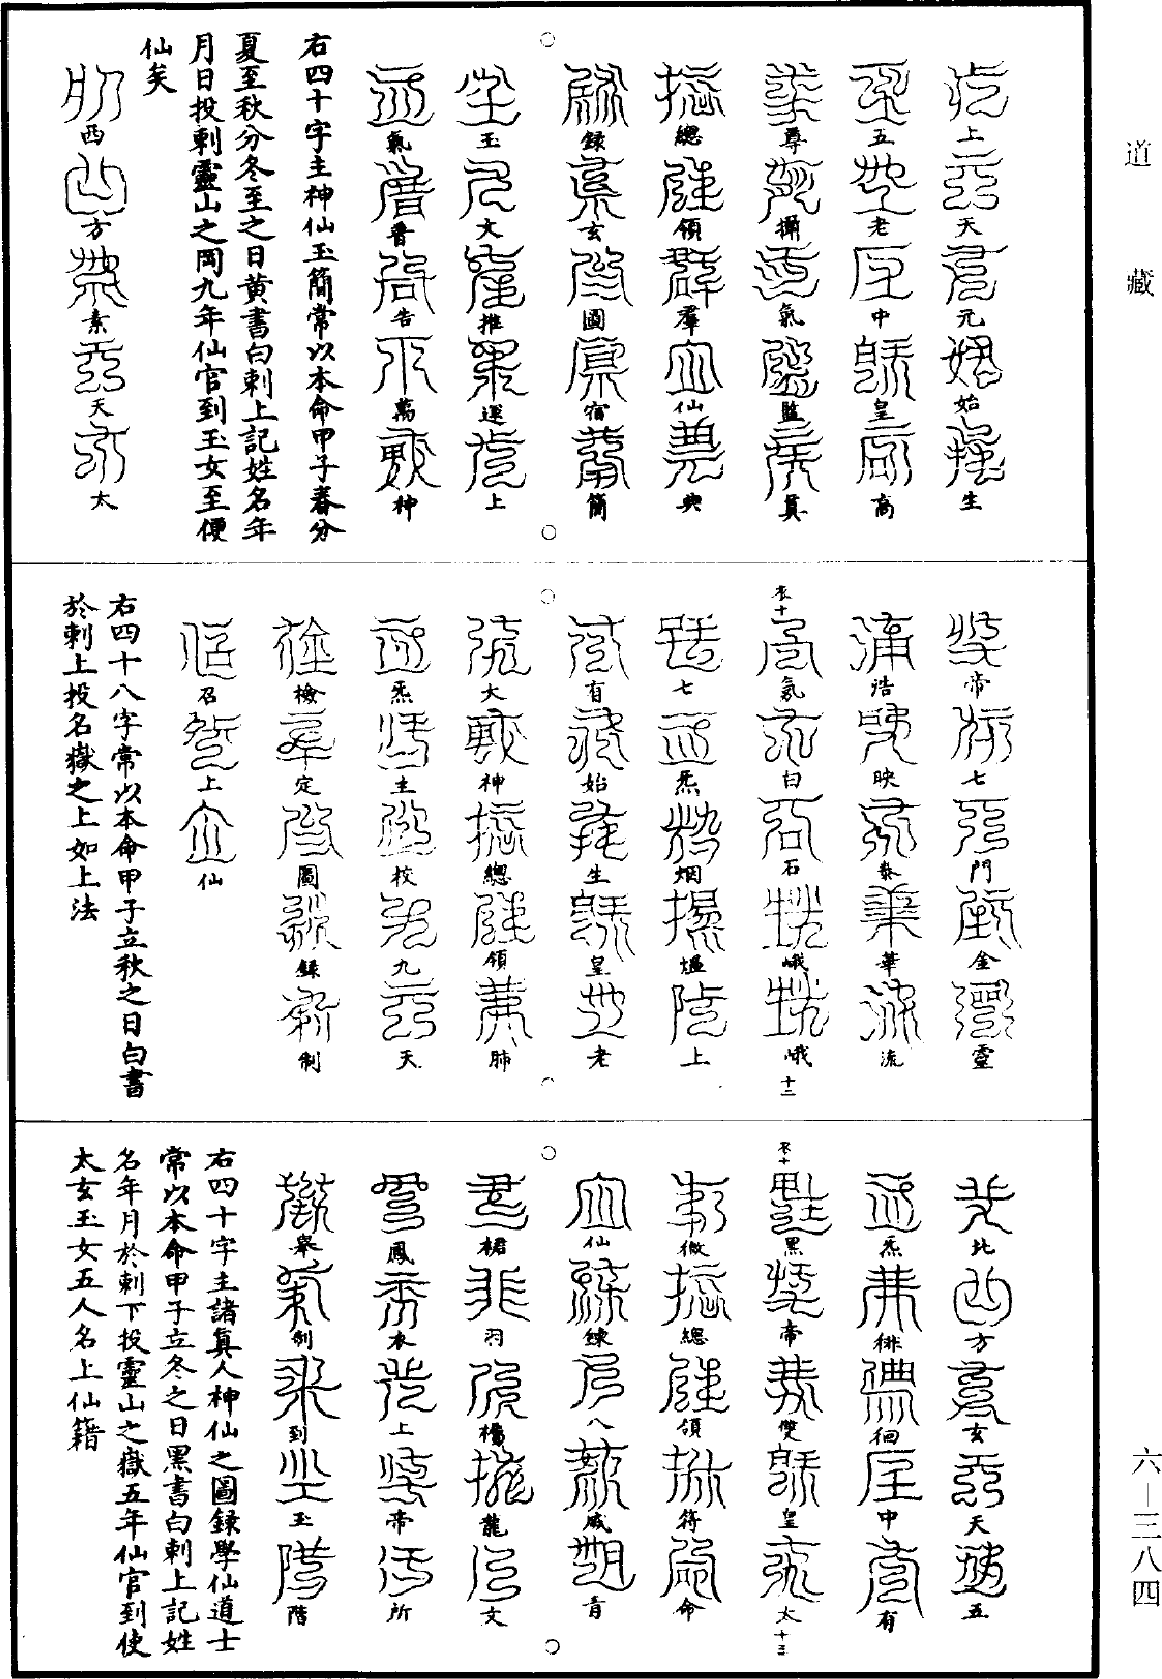 道藏
上天元始生
五老中皇高
尊攝氣監真
總領羣仙典
錄玄圖宿簡
玉文推運上
氣普告萬神
右四十字主神仙玉簡常以本命甲子春分
夏至秋分冬至之日黃書白刺上記姓名年
月日投刺靈山之岡九年仙官到玉女至便
仙矣
西方素天太
帝七門金靈
浩映泰華流
氣白石峨峨
十二
七炁烟熅上
有始生皇老
大神總領肺
炁主校九天
檢定圖錄制
召上仙
右四十八字常以本命甲子立秋之日白書
於刺上投名嶽之上如上法
北方玄天五
炁徘徊中有
黑帝雙皇太
十三
微總領符命
仙練八威青
裙羽㯓龍文
鳳衣上帝所
舉制到玉階
右四十字主諸真人神仙之圖錄學仙道士
常以本命甲子立冬之日黑書白刺上記姓
名年月於刺下投靈山之嶽五年仙官到使
太玄玉女五人名上仙籍
六—三八四